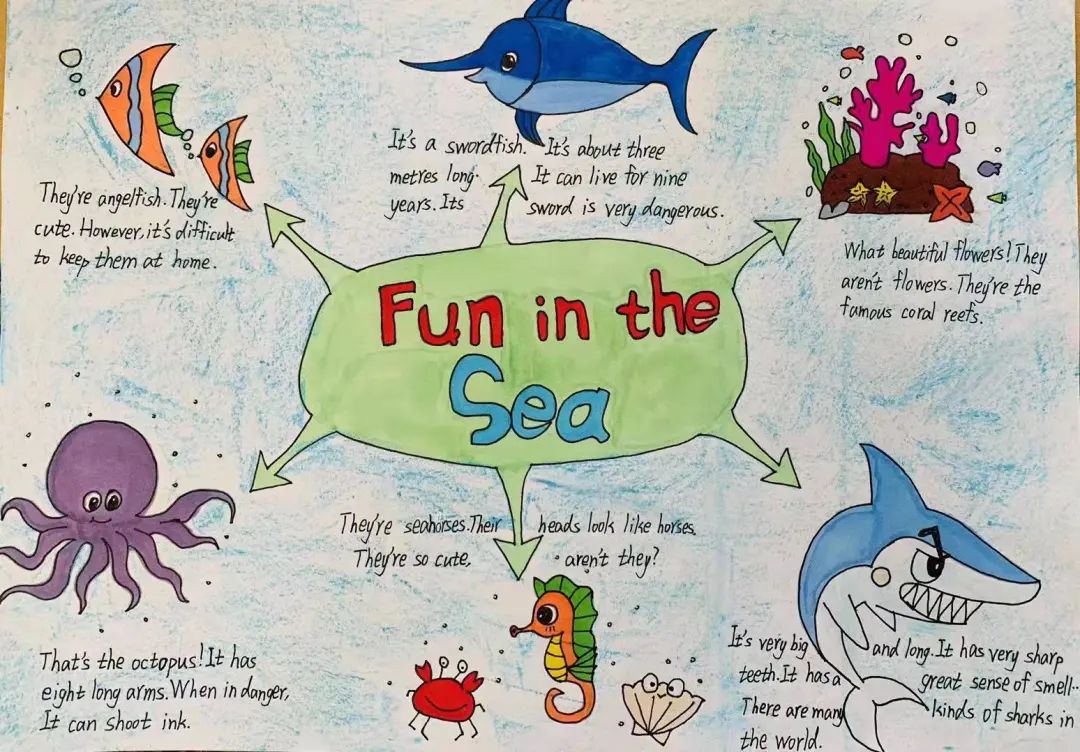 They're angelfish. They're
cute. However, it's difficult
to keep them at home.
It's a swordfish. It's about three
metres long. It can live for nine
years. Its sword is very dangerous.
What beautiful flowers! They
aren't flowers. They're the
famous coral reefs.
Fun in the
Sea
They're seahorses. Their heads look like horses.
They're so cute, aren't they?
That's the octopus! It has
eight long arms. When in danger,
It can shoot ink.
It's very big and long. It has very sharp
teeth. It has a great sense of smell.
There are many kinds of sharks in
the world.